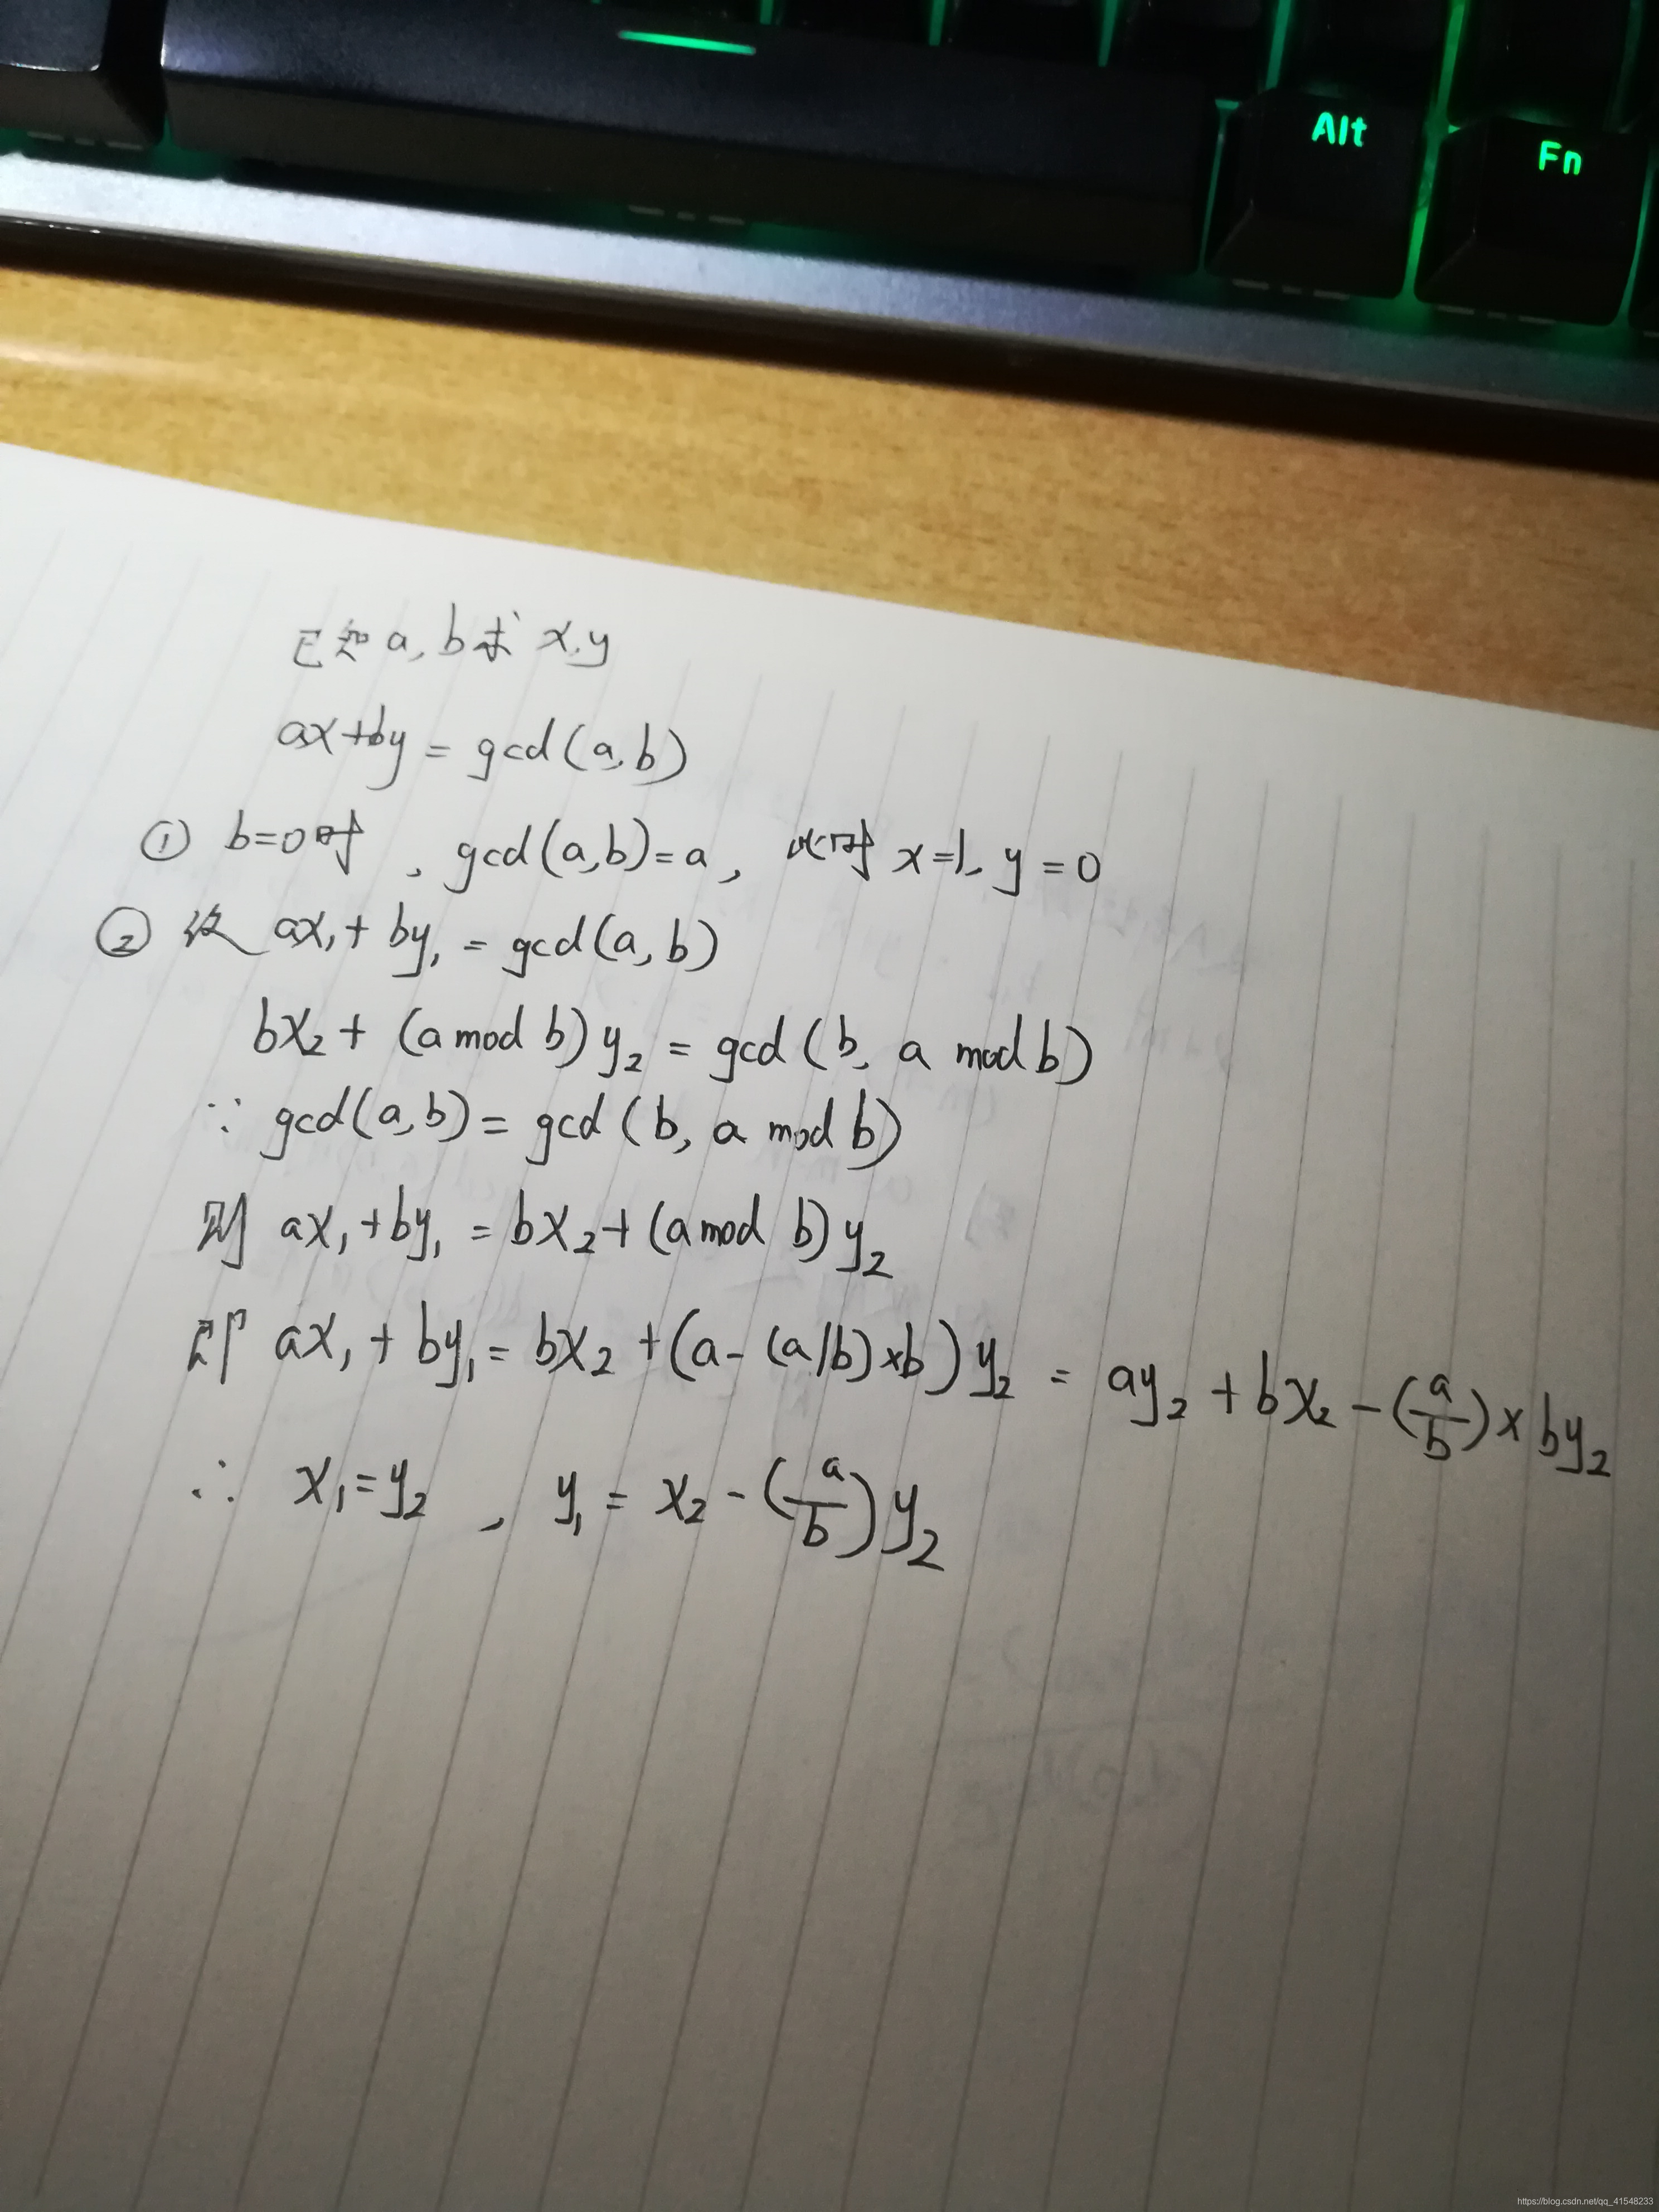 Alt
Fn
已知 a, b 求 x, y
ax+by = gcd(a,b)
① b=0时, gcd(a,b)=a, 此时 x=1, y=0
② 设 ax₁+by₁ = gcd(a,b)
bx₂+(a mod b)y₂ = gcd(b, a mod b)
∵ gcd(a,b) = gcd(b, a mod b)
则 ax₁+by₁ = bx₂+(a mod b)y₂
即 ax₁+by₁ = bx₂+(a-(a/b)×b)y₂ = ay₂+bx₂-(a/b)×by₂
∴ x₁=y₂, y₁=x₂-(a/b)y₂
https://blog.csdn.net/qq_41548233